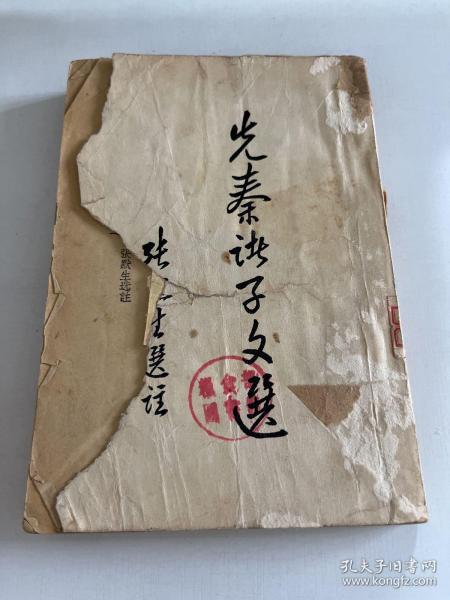 先秦诸子文選
张 生選註
張默生选註
孔夫子旧书网
www.kongfz.com